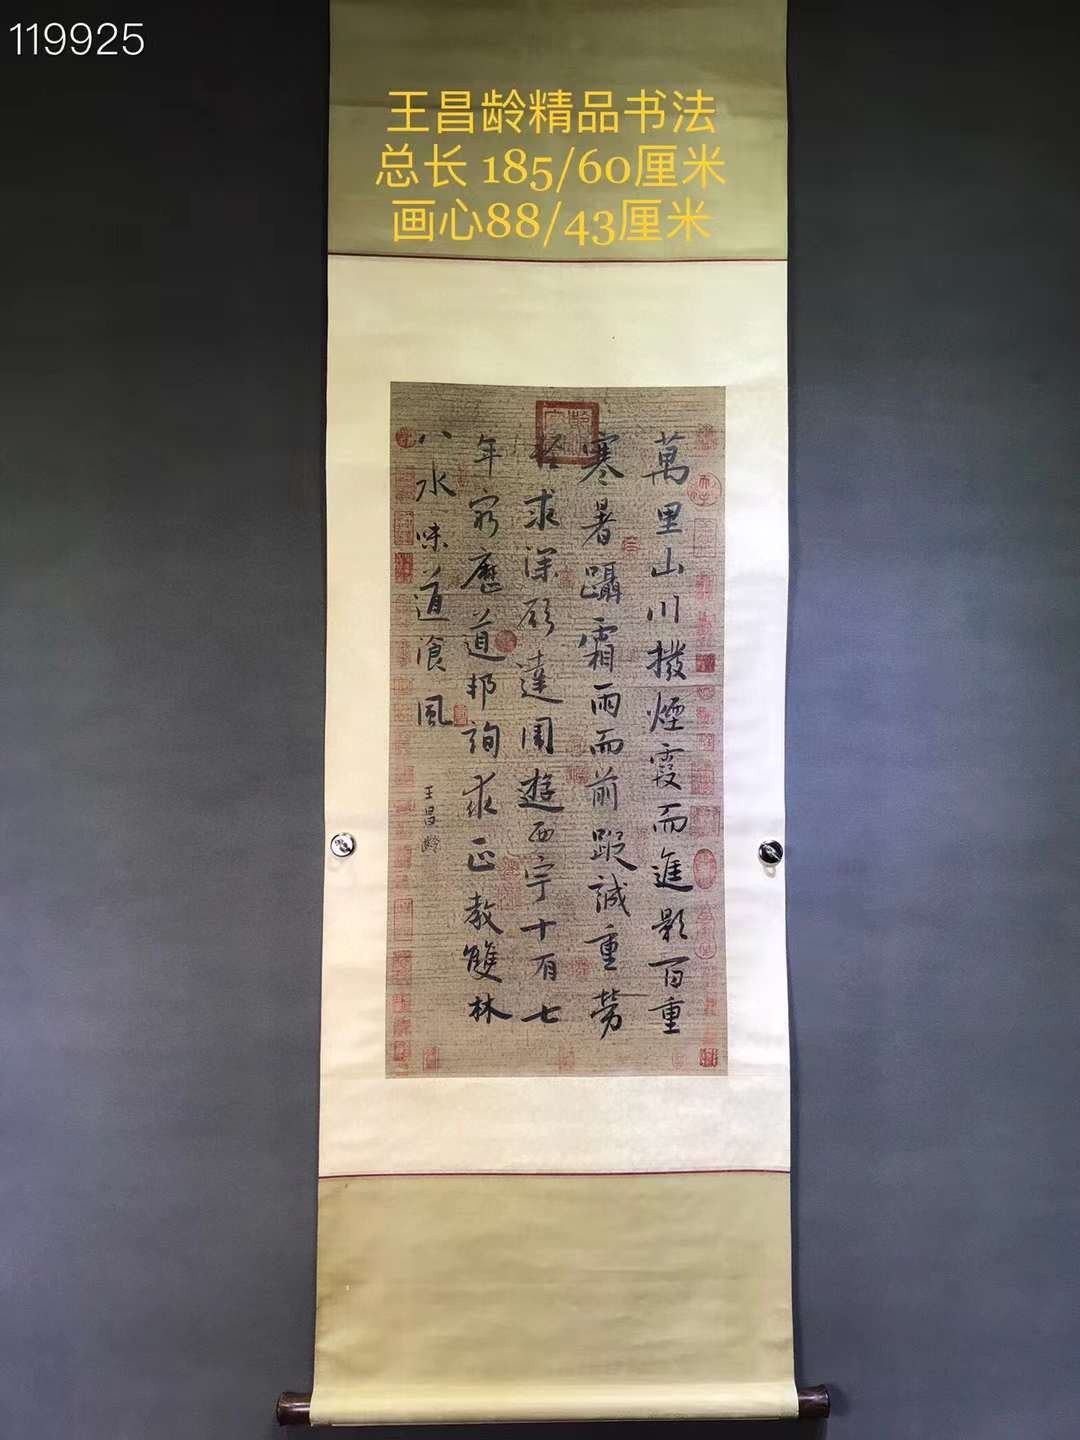 119925
王昌龄精品书法
总长 185/60厘米
画心88/43厘米
萬里山川撥煙霞而進影百重
寒暑躡霜雨而前蹤誠重勞
求深願達周遊西宇十有七
年窮歷道邦詢求正教雙林
八水味道飡風
王昌齡